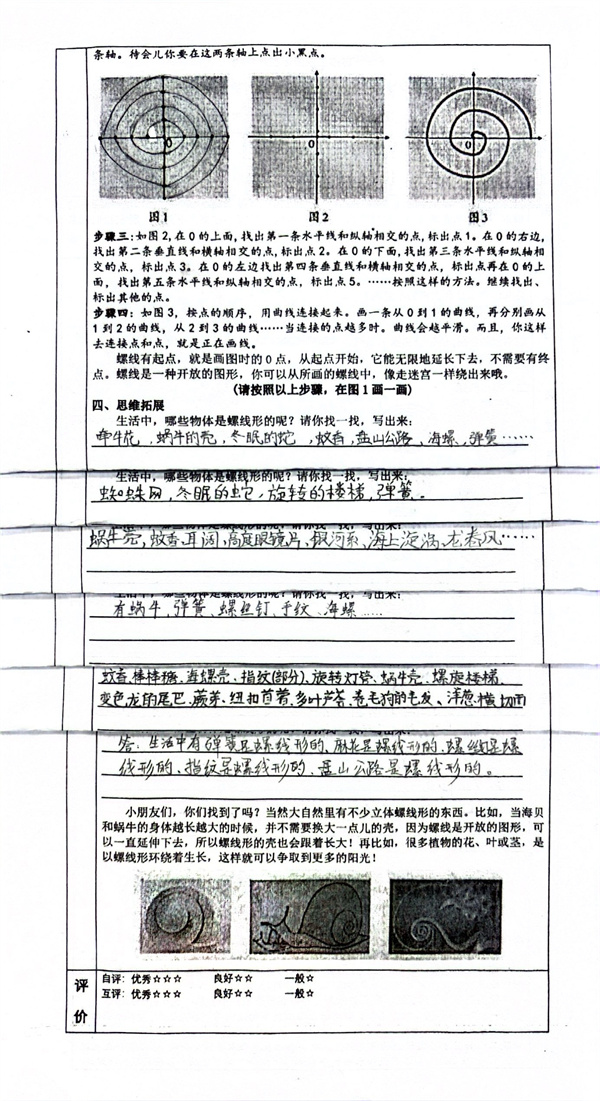 条轴。待会儿你要在这两条轴上点出小黑点。
0
0
0
图1
图2
图3
步骤三:如图2,在0的上面,找出第一条水平线和纵轴相交的点,标出点1。在0的右边,
找出第二条垂直线和横轴相交的点,标出点2。在0的下面,找出第三条水平线和纵轴相
交的点,标出点3。在0的左边找出第四条垂直线和横轴相交的点,标出点再在0的上
面,找出第五条水平线和纵轴相交的点,标出点5。……按照这样的方法。继续找出、
标出其他的点。
步骤四:如图3,按点的顺序,用曲线连接起来。画一条从0到1的曲线,再分别画从
1到2的曲线,从2到3的曲线……当连接的点越多时。曲线会越平滑。而且,你这样
去连接点和点,就是正在画线。
螺线有起点,就是画图时的0点,从起点开始,它能无限地延长下去,不需要有终
点。螺线是一种开放的图形,你可以从所画的螺线中,像走迷宫一样绕出来哦。
(请按照以上步骤,在图1画一画)
四、思维拓展
生活中,哪些物体是螺线形的呢?请你找一找,写出来:
牵牛花,蜗牛的壳,冬眠的蛇,蚊香,盘山公路,海螺,弹簧……
生活中,哪些物体是螺线形的呢?请你找一找,写出来:
蜘蛛网,冬眠的蛇,旋转的楼梯,弹簧。
蜗牛壳,蚊香,耳阔,高度眼镜片,银河系,海上旋涡,龙卷风……
有蜗牛,弹簧,螺丝钉,手纹,海螺……
蚊香、棒棒糖、海螺壳、指纹(部分)、旋转灯管、蜗牛壳、螺旋楼梯、
变色龙的尾巴、蕨芽、纽扣苜蓿、多叶芦荟、卷毛狗的毛发、洋葱横切面
答:生活中有弹簧是螺线形的、麻花是螺线形的、螺丝是螺
线形的、指纹是螺线形的、盘山公路是螺线形的。
小朋友们,你们找到了吗?当然大自然里有不少立体螺线形的东西。比如,当海贝
和蜗牛的身体越长越大的时候,并不需要换大一点儿的壳,因为螺线是开放的图形,可
以一直延伸下去,所以螺线形的壳也会跟着长大!再比如,很多植物的花、叶或茎,是
以螺线形环绕着生长,这样就可以争取到更多的阳光!
评价
自评:优秀☆☆☆ 良好☆☆ 一般☆
互评:优秀☆☆☆ 良好☆☆ 一般☆